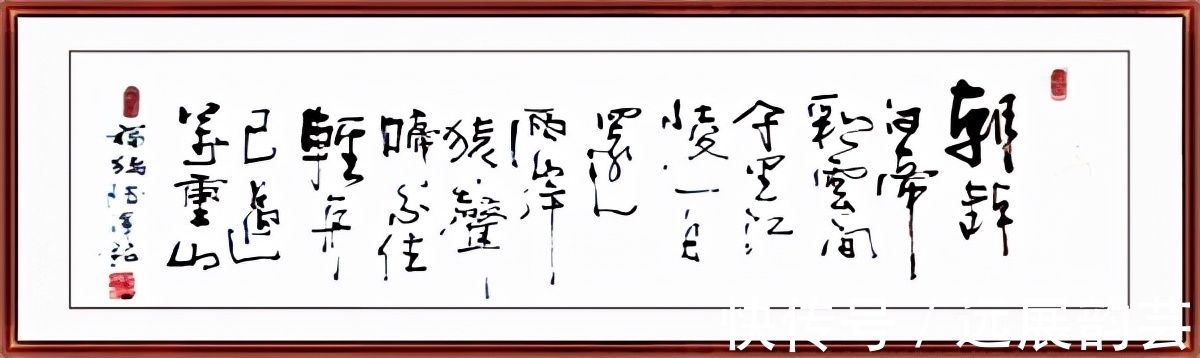 朝辭
白帝
彩雲間
千里江
陵一日
還
兩岸
猿聲
啼不住
輕舟
已過
萬重山
快传号 / 远展韵芸